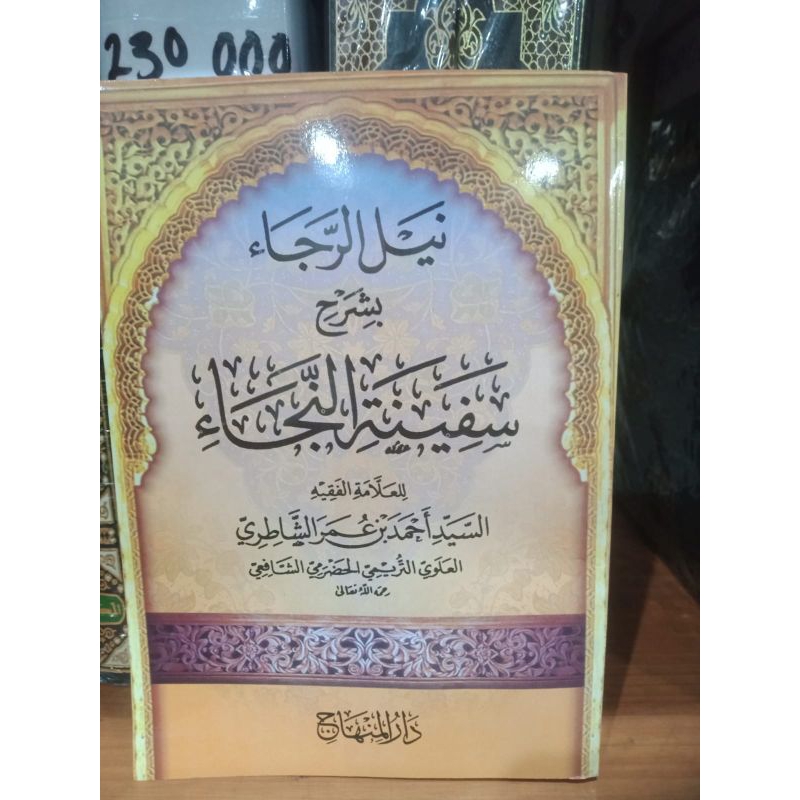 230 000
نَيْلُ الرَّجَاءِ
بِشَرْحِ
سَفِينَةِ النَّجَاءِ
لِلعَلَّامَةِ الفَقِيهِ
السَّيِّد أَحْمَد بْن عُمَر الشَّاطِرِيّ
العَلَوي التَّرِيمِيّ الحَضْرَمِيّ الشَّافِعِيّ
رحمه الله تعالى
دَارُ المِنْهَاج